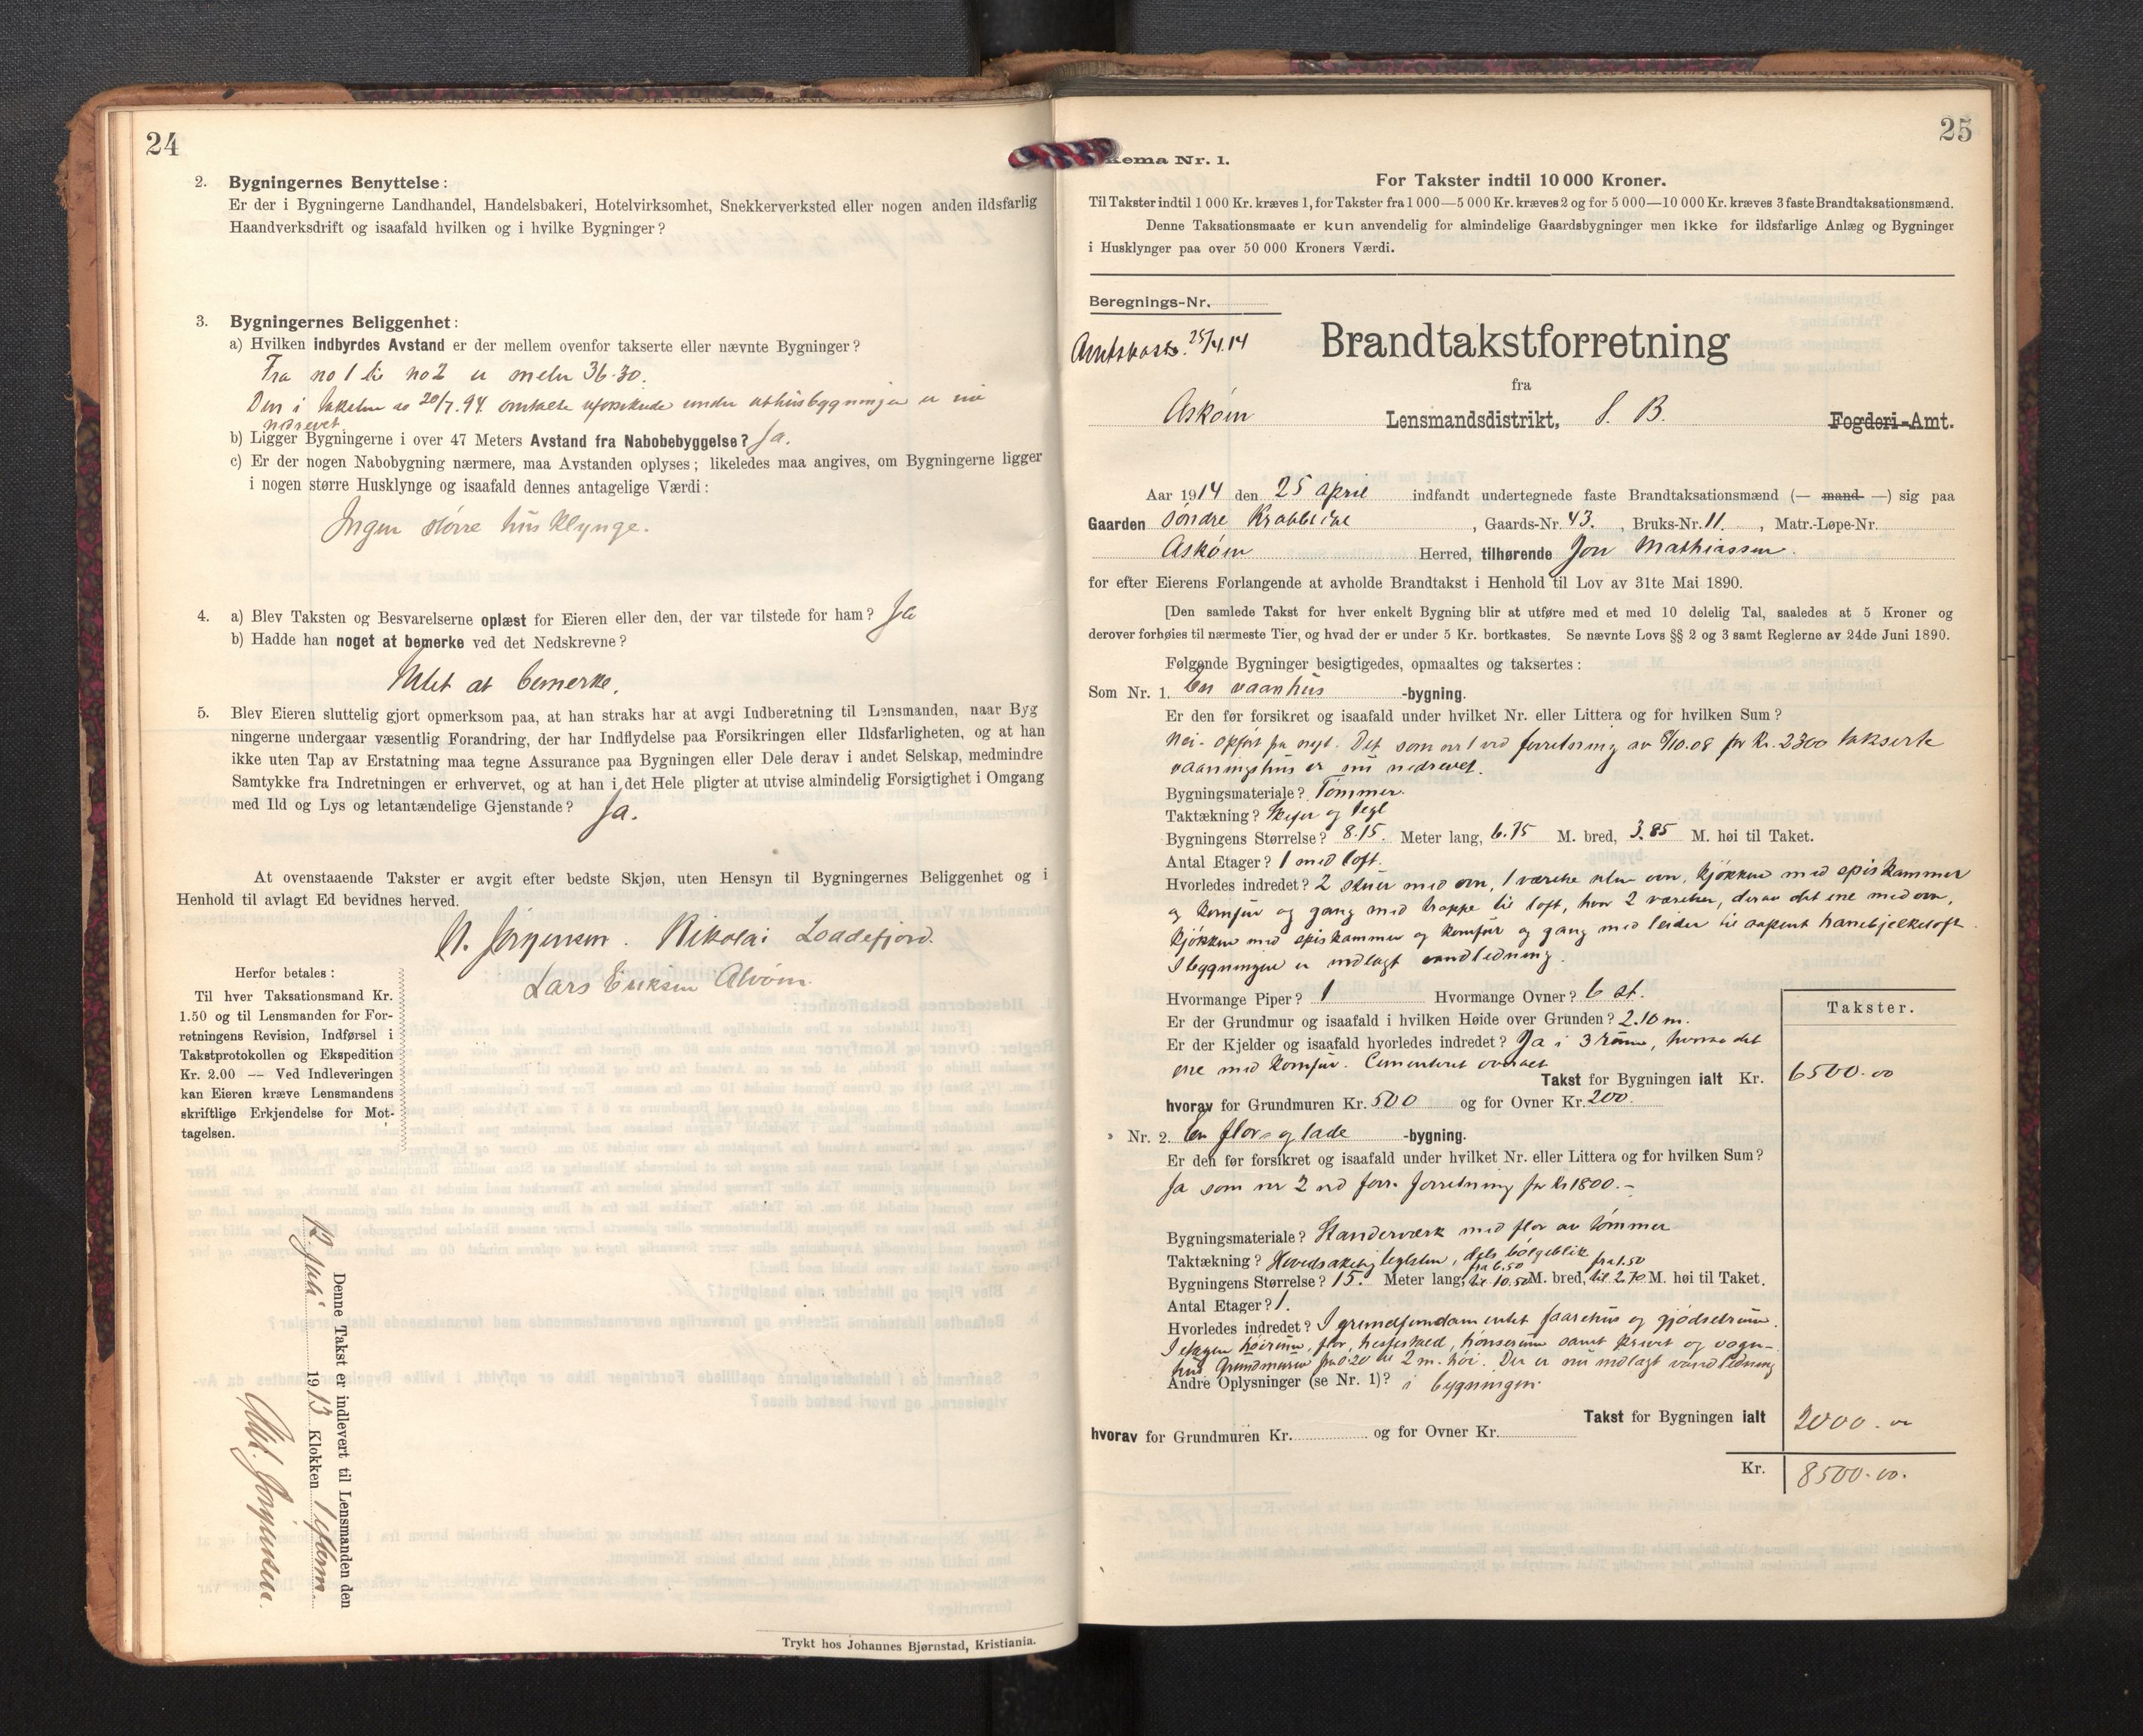 24
2. Bygningernes Benyttelse:
Er der i Bygningerne Landhandel, Handelsbakeri, Hotelvirksomhet, Snekkerverksted eller nogen anden ildsfarlig
Haandverksdrift og isaafald hvilken og i hvilke Bygninger?
3. Bygningernes Beliggenhet:
a) Hvilken indbyrdes Avstand er der mellem ovenfor takserte eller nævnte Bygninger?
Fra no 1 til no 2 er meter 36.30.
Den i taksten av 20/7.94. omtalte uforsikrede undre uthusbygninger er nu
nedrevet.
b) Ligger Bygningerne i over 47 Meters Avstand fra Nabobebyggelse? Ja.
c) Er der nogen Nabobygning nærmere, maa Avstanden oplyses; likeledes maa angives, om Bygningerne ligger
i nogen større Husklynge og isaafald dennes antagelige Værdi:
Ingen større husklynge.
4. a) Blev Taksten og Besvarelserne oplæst for Eieren eller den, der var tilstede for ham? Ja
b) Hadde han noget at bemerke ved det Nedskrevne?
Intet at bemerke.
5. Blev Eieren sluttelig gjort opmerksom paa, at han straks har at avgi Indberetning til Lensmanden, naar Byg
ningerne undergaar væsentlig Forandring, der har Indflydelse paa Forsikringen eller Ildsfarligheten, og at han
ikke uten Tap av Erstatning maa tegne Assurance paa Bygningen eller Dele derav i andet Selskap, medmindre
Samtykke fra Indretningen er erhvervet, og at han i det Hele pligter at utvise almindelig Forsigtighet i Omgang
med Ild og Lys og letantændelige Gjenstande? Ja.
At ovenstaaende Takster er avgit efter bedste Skjøn, uten Hensyn til Bygningernes Beliggenhet og i
Henhold til avlagt Ed bevidnes herved.
N. Jørgensen. Nikolai Loddefjord.
Lars Eriksen Alvøen.
Herfor betales:
Til hver Taksationsmand Kr.
1.50 og til Lensmanden for For-
retningens Revision, Indførsel i
Takstprotokollen og Ekspedition
Kr. 2.00 — Ved Indleveringen
kan Eieren kræve Lensmandens
skriftlige Erkjendelse for Mot-
tagelsen.
Denne Takst er indlevert til Lensmanden den
12 Juli 1913 Klokken 1 efterm.
Nik. Jørgensen.
Trykt hos Johannes Bjørnstad, Kristiania.
25
kema Nr. 1.
For Takster indtil 10 000 Kroner.
Til Takster indtil 1 000 Kr. kræves 1, for Takster fra 1 000—5 000 Kr. kræves 2 og for 5 000—10 000 Kr. kræves 3 faste Brandtaksationsmænd.
Denne Taksationsmaate er kun anvendelig for almindelige Gaardsbygninger men ikke for ildsfarlige Anlæg og Bygninger
i Husklynger paa over 50 000 Kroners Værdi.
Beregnings-Nr.
25/4.14
Brandtakstforretning
fra
Askøen Lensmandsdistrikt, S. B. Fogderi-Amt.
Aar 1914 den 25 april indfandt undertegnede faste Brandtaksationsmænd (— mand —) sig paa
Gaarden Søndre Krabbedal, Gaards-Nr. 43., Bruks-Nr. 11., Matr.-Løpe-Nr.
Askøen Herred, tilhørende Jon Mathiassen.
for efter Eierens Forlangende at avholde Brandtakst i Henhold til Lov av 31te Mai 1890.
[Den samlede Takst for hver enkelt Bygning blir at utføre med et med 10 delelig Tal, saaledes at 5 Kroner og
derover forhøies til nærmeste Tier, og hvad der er under 5 Kr. bortkastes. Se nævnte Lovs §§ 2 og 3 samt Reglerne av 24de Juni 1890.
Følgende Bygninger besigtigedes, opmaaltes og taksertes:
Som Nr. 1. En vaanhus -bygning.
Er den før forsikret og isaafald under hvilket Nr. eller Littera og for hvilken Sum?
Nei - opført fra nyt. Det som nr 1 ved forretning av 9/10.08 for Kr. 2300 takserte
vaaningshus er nu nedrevet.
Bygningsmateriale? Tømmer.
Taktækning? Skifer og tegl
Bygningens Størrelse? 8.15. Meter lang, 6.75 M. bred, 3.85 M. høi til Taket.
Antal Etager? 1 med loft.
Hvorledes indredet? 2 stuer med ovn, 1 værelse uten ovn, kjøkken med spiskammer
og komfur og gang med trappe til loft, hvor 2 værelser, derav det ene med ovn,
kjøkken med spiskammer og komfur og gang med leider til aapent hanebjelkeloft.
I bygningen er indlagt vandledning.
Hvormange Piper? 1 Hvormange Ovner? 6 st.
Er der Grundmur og isaafald i hvilken Høide over Grunden? 2.10 m.
Er der Kjelder og isaafald hvorledes indredet? Ja i 3 rum, hvorav det
ene med komfur. Cementeret overalt
Takster.
Takst for Bygningen ialt Kr. 6500.00
hvorav for Grundmuren Kr. 500 og for Ovner Kr. 200.
» Nr. 2. En flor- og lade -bygning.
Er den før forsikret og isaafald under hvilket Nr. eller Littera og for hvilken Sum?
Ja som nr 2 ved forr. forretning for kr 1800.-
Bygningsmateriale? Standerværk med flor av tømmer
Taktækning? Hovedsakelig teglsten, dels bølgeblik
Bygningens Størrelse? 15. Meter lang, fra 6.50 til 10.50 M. bred, fra 1.50 til 2.70 M. høi til Taket.
Antal Etager? 1.
Hvorledes indredet? I grundfundamentet faarehus og gjødselrum.
I etagen høirum, flor, hestesked, hønserum samt kravt og vogn-
hus. Grundmuren fra 0.20 til 2 m. høi. Der er nu indlagt vandledning
Andre Oplysninger (se Nr. 1)? i bygningen.
Takst for Bygningen ialt 2000.00
hvorav for Grundmuren Kr. og for Ovner Kr.
Kr. 8500.00.